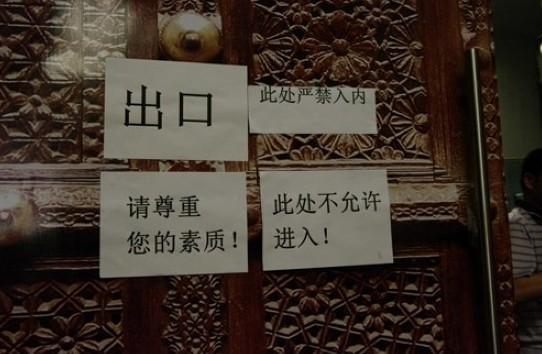 出口
此处严禁入内
请尊重
您的素质！
此处不允许
进入！